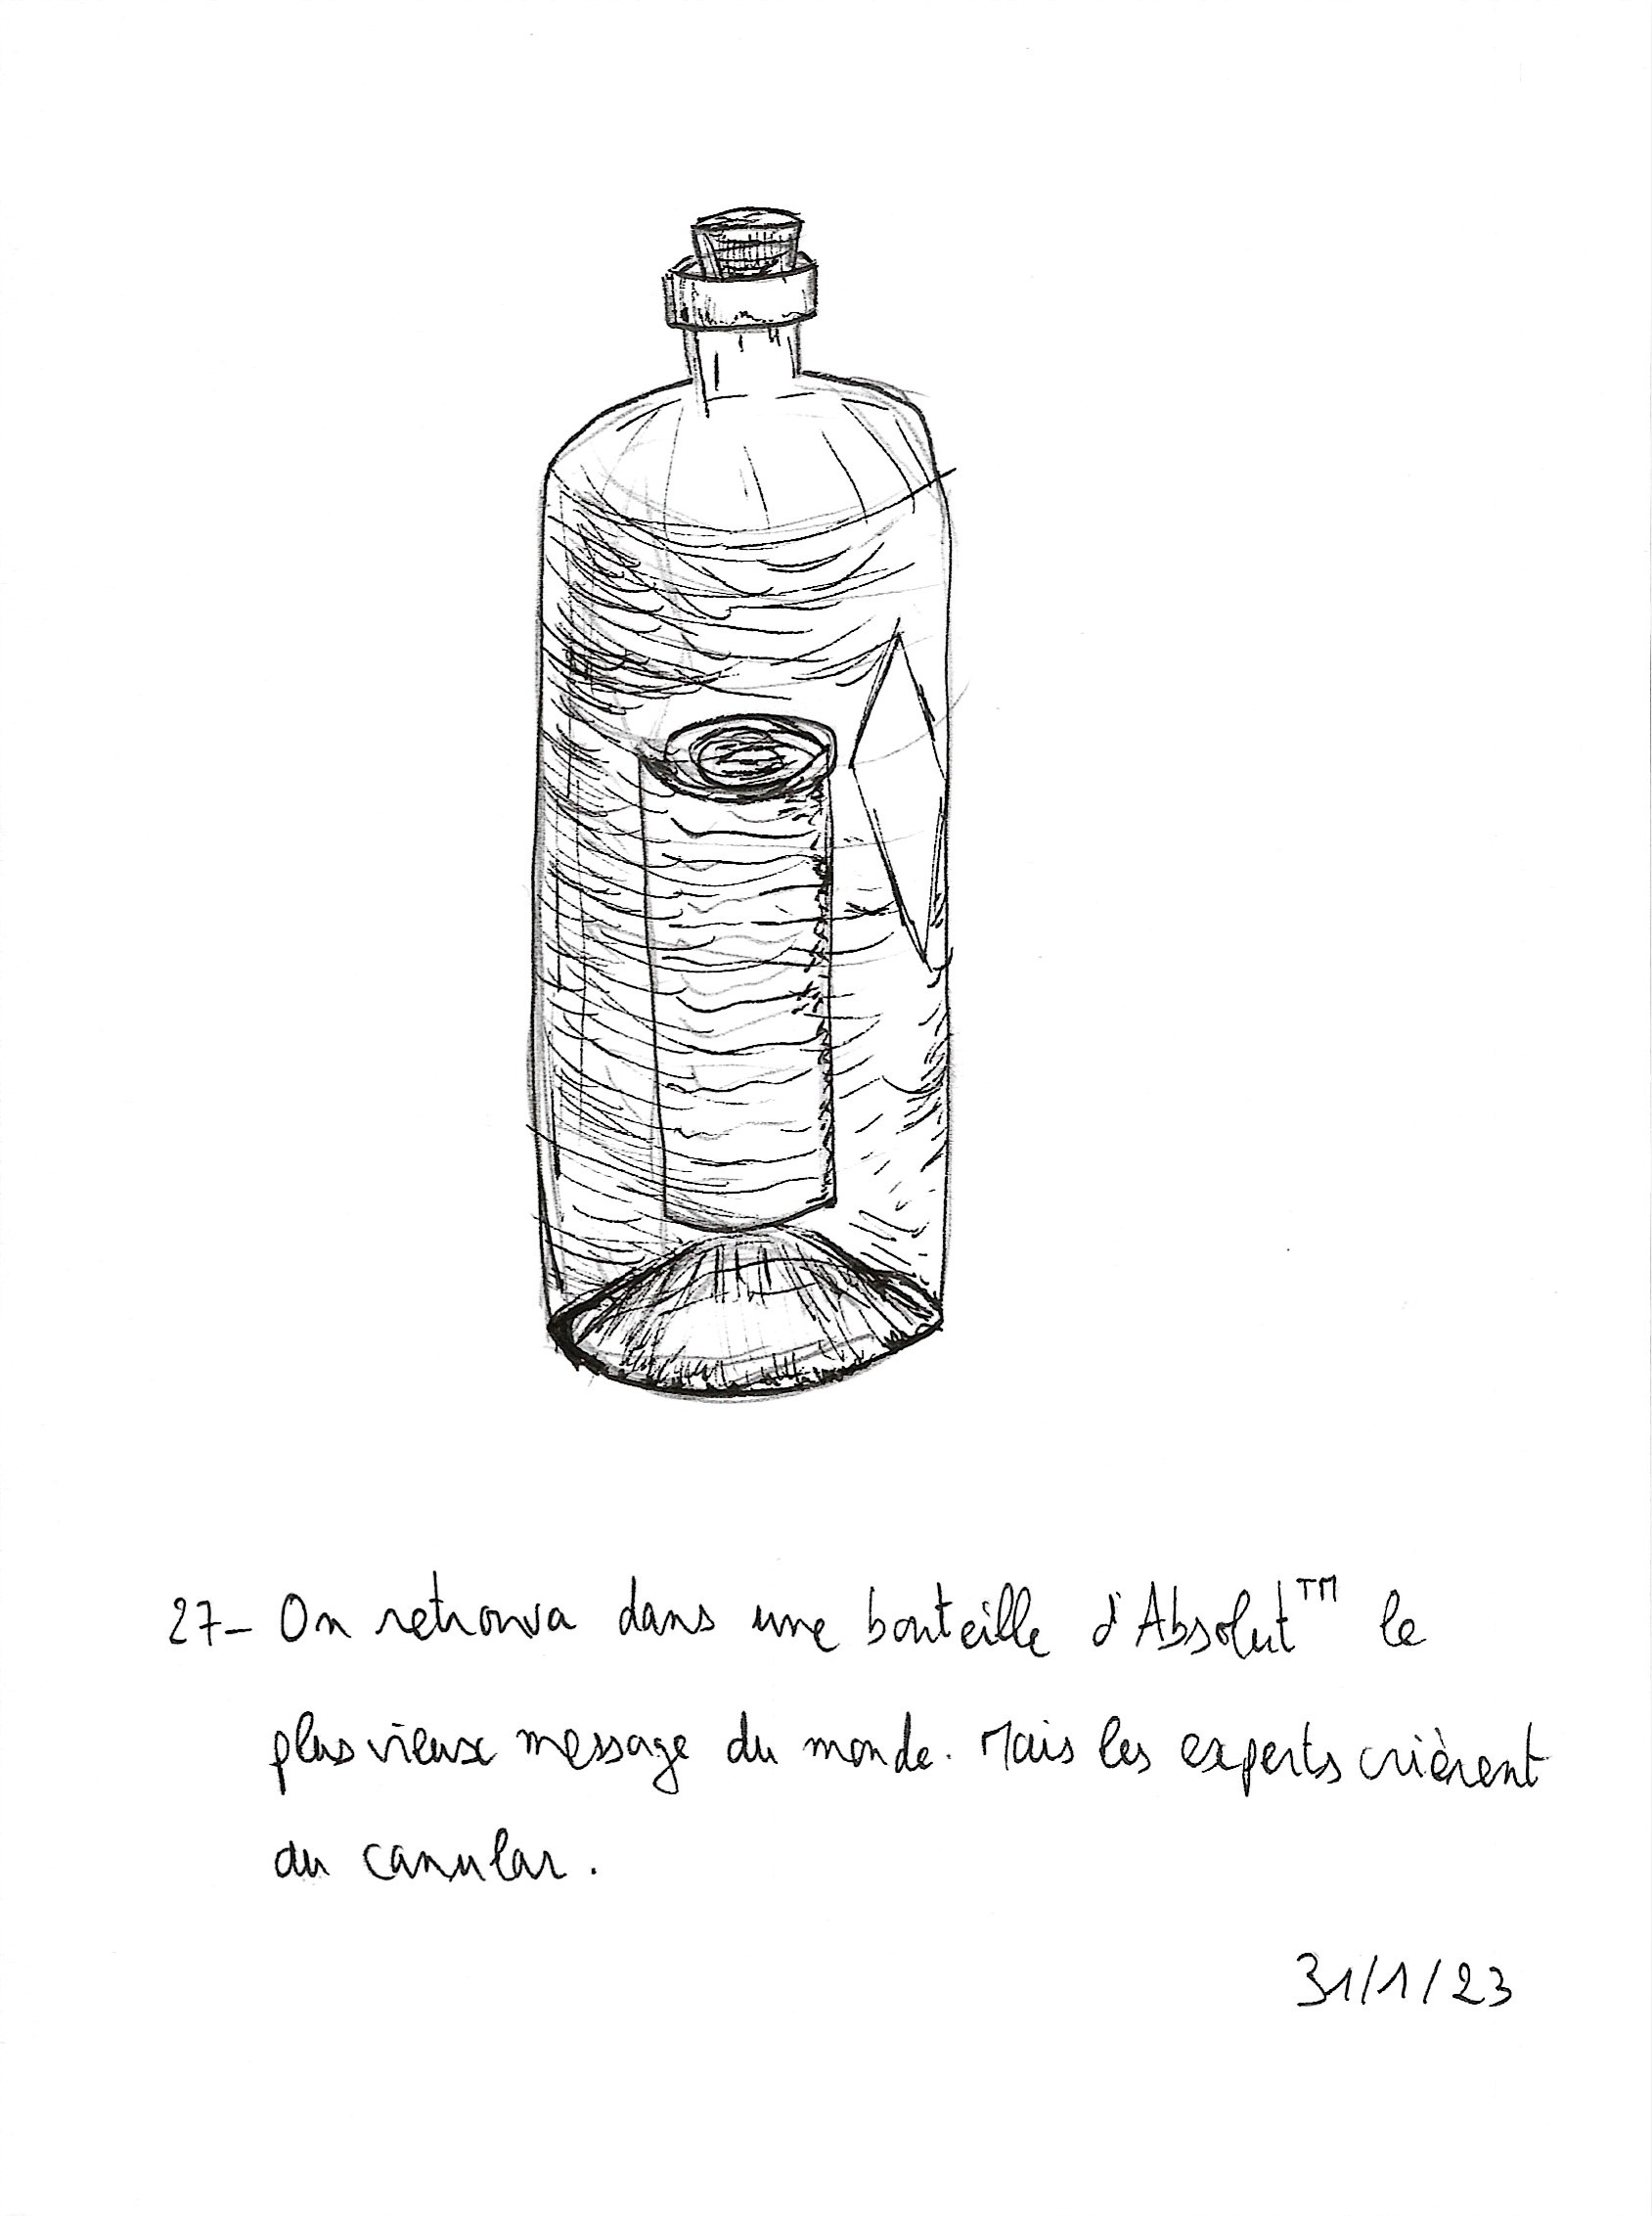 27- On retrouva dans une bouteille d'Absolut™ le
plus vieux message du monde. Mais les experts crièrent
au canular.
31/1/23